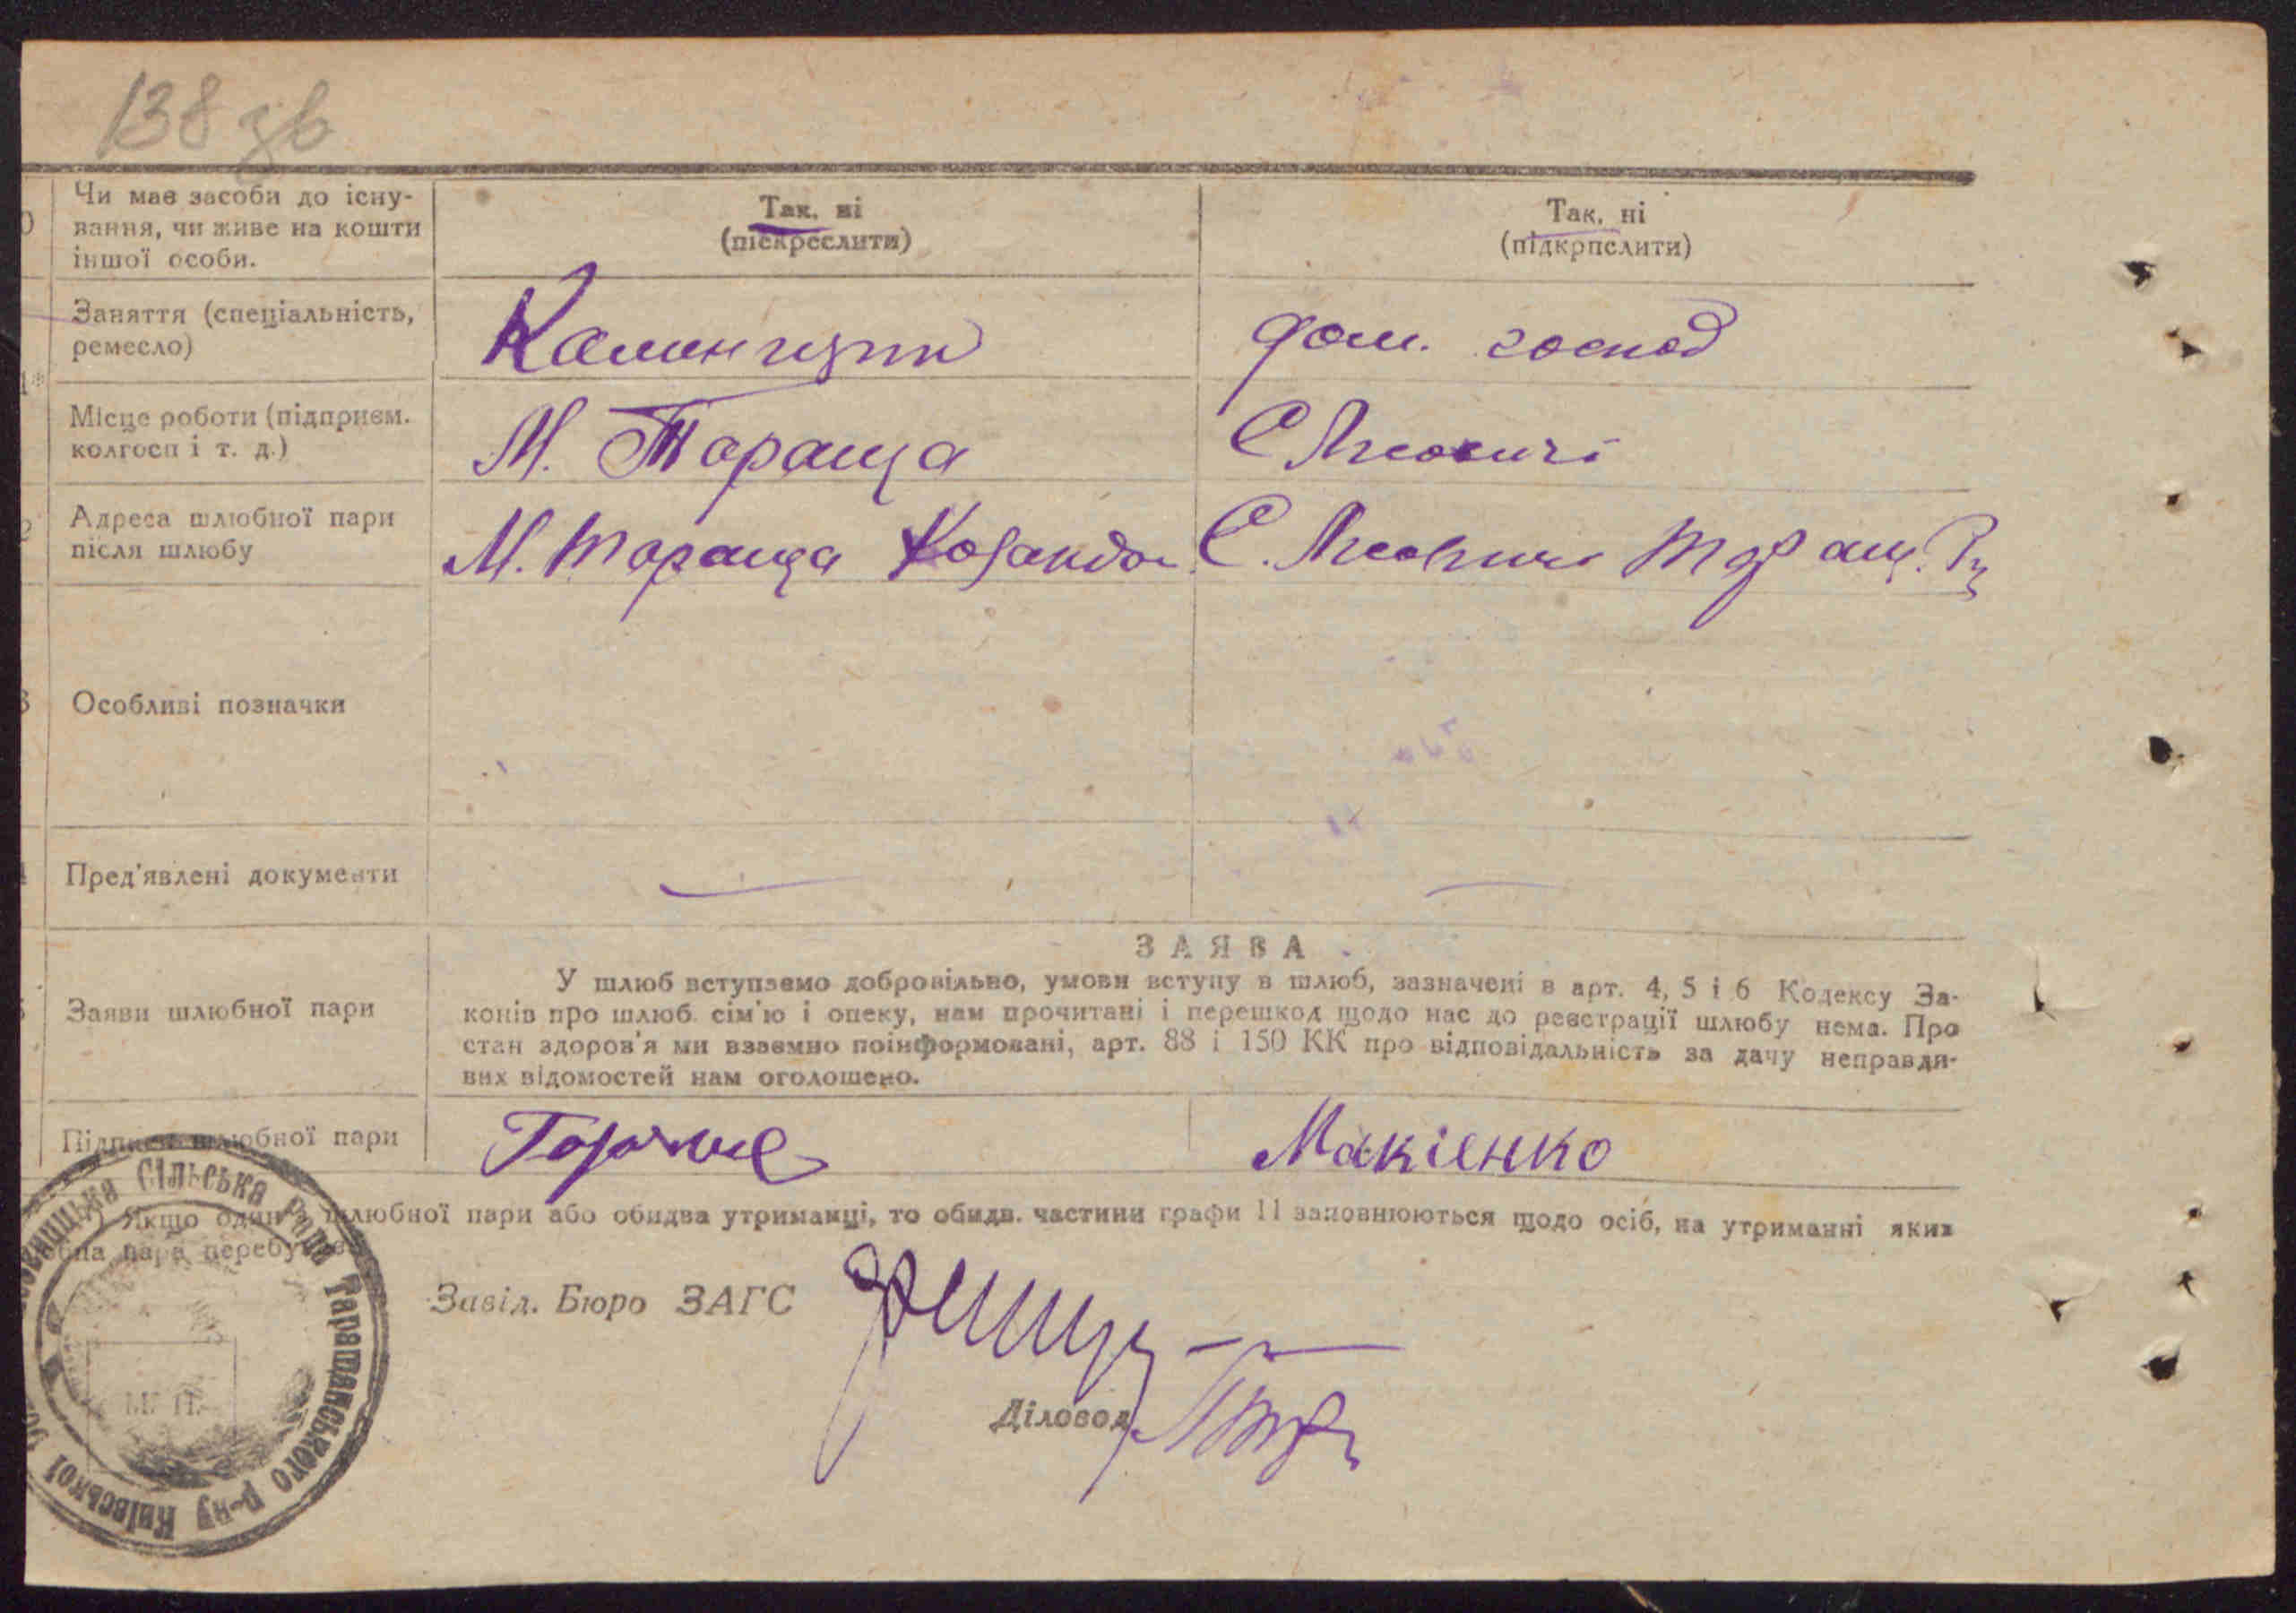 138 зв
0
Чи має засоби до існу-
вання, чи живе на кошти
іншої особи.
Так, ні
(підкреслити)
Так, ні
(підкрпслити)
Заняття (спеціальність,
ремесло)
дом. господ
Місце роботи (підприєм.
колгосп і т. д.)
М. Тараща
С
Адреса шлюбної пари
після шлюбу
М. Тараща
С. Таращ.
Особливі позначки
Пред'явлені документи
Заяви шлюбної пари
ЗАЯВА
У шлюб вступаємо добровільно, умови вступу в шлюб, зазначені в арт. 4, 5 і 6 Кодексу За-
конів про шлюб сім'ю і опеку, нам прочитані і перешкод щодо нас до реєстрації шлюбу нема. Про
стан здоров'я ми взаємно поінформовані, арт. 88 і 150 КК про відповідальність за дачу неправди-
вих відомостей нам оголошено.
Підписи шлюбної пари
Макієнко
Якщо один з шлюбної пари або обидва утриманці, то обидв. частини графи 11 заповнюються щодо осіб, на утриманні яких
пара перебуває
Завід. Бюро ЗАГС
Діловод
Сільська Рада Таращанського р-ну Київської
М. П.